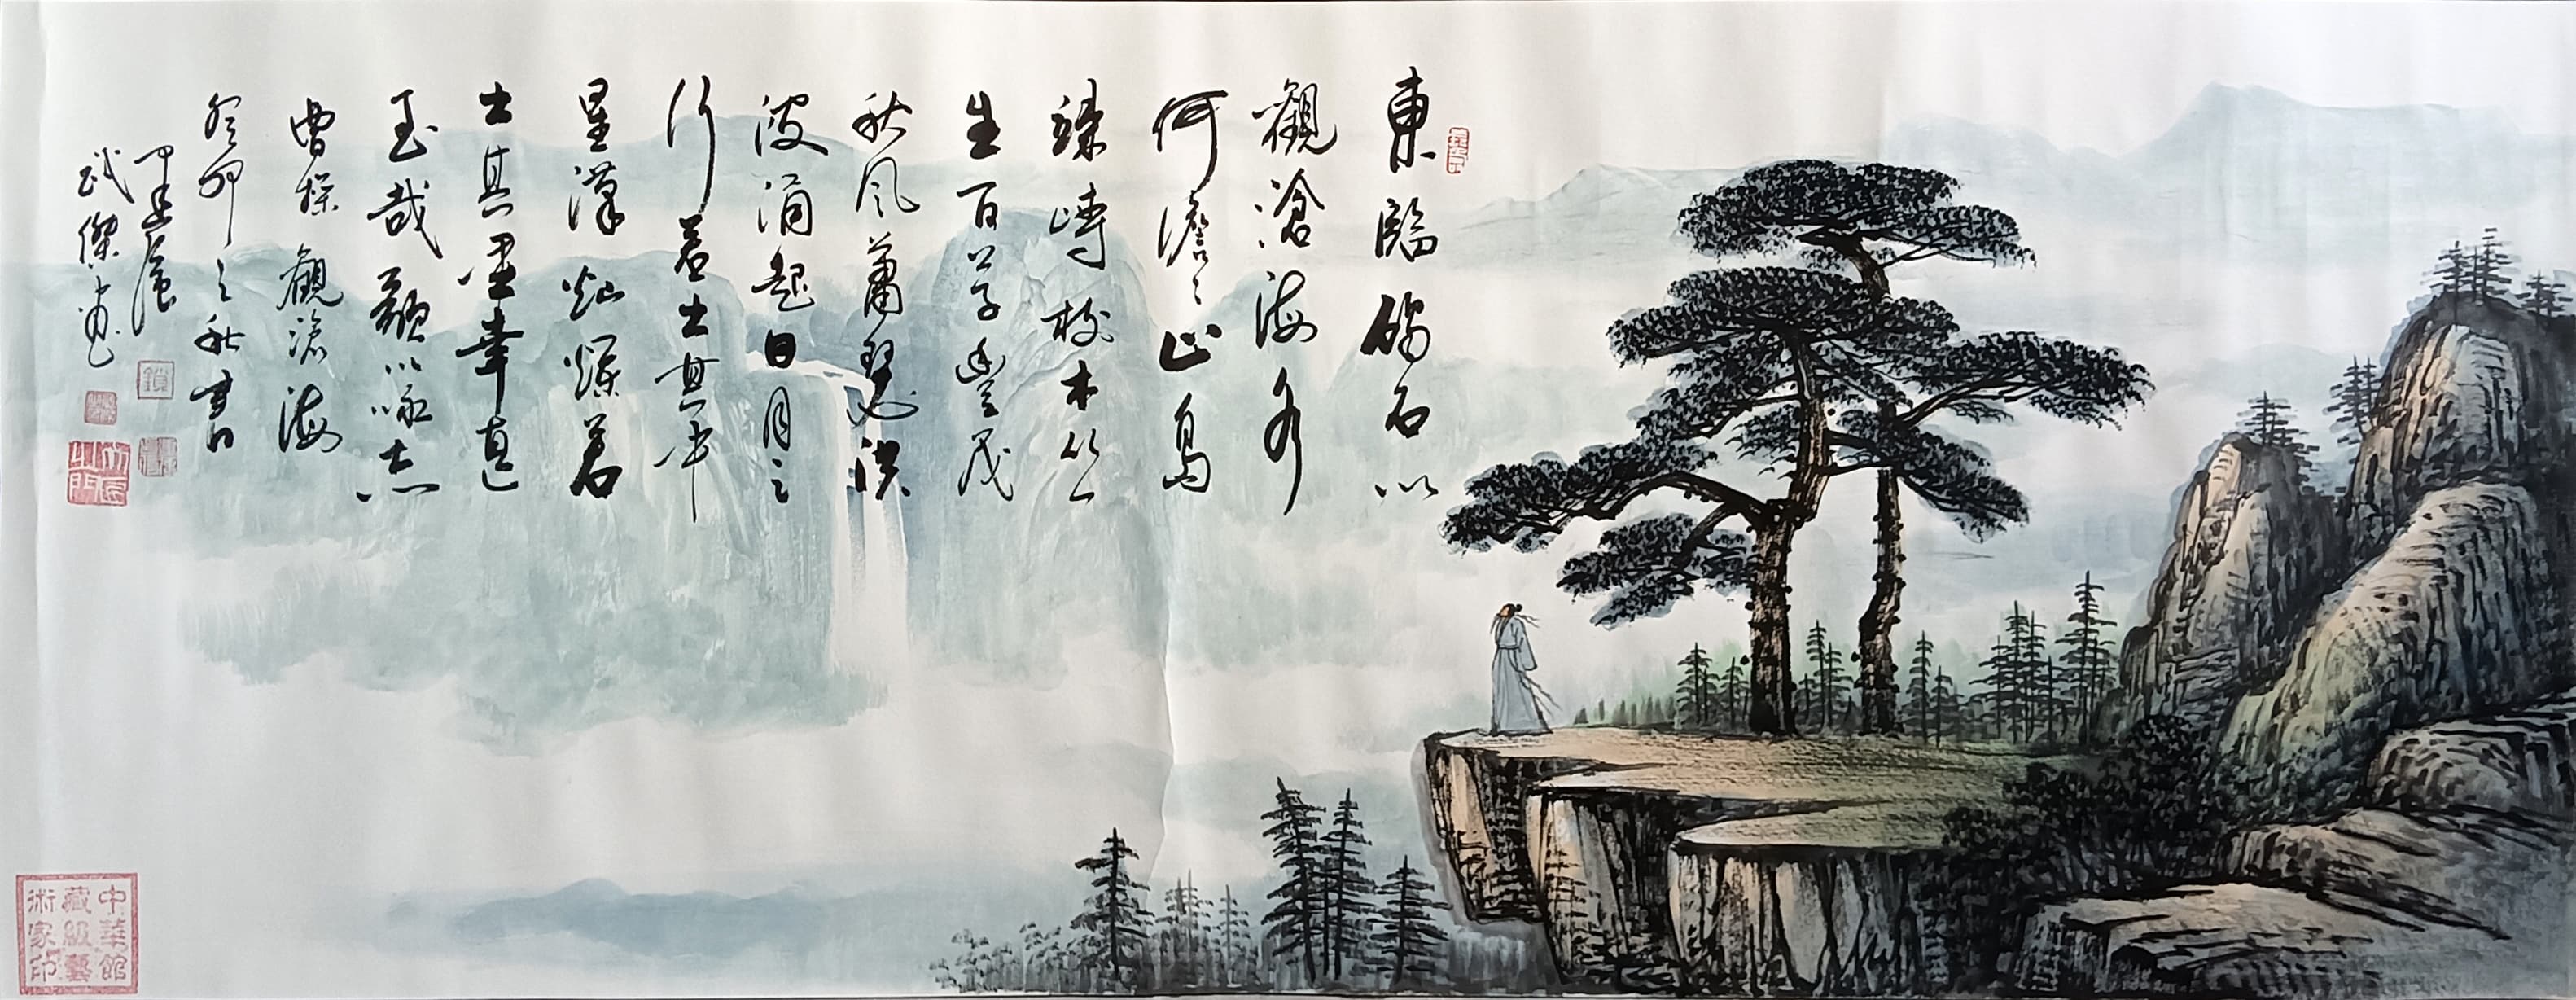 東臨碣石以
觀滄海水
何澹々山島
竦峙树木丛
生百草豐茂
秋风蕭瑟洪
波涌起日月之
行若出其中
星漢灿爛若
出其里幸甚
至哉歌以咏志
曹操觀滄海
癸卯之秋書
武傑畫
中華館
藏級藝
術家印